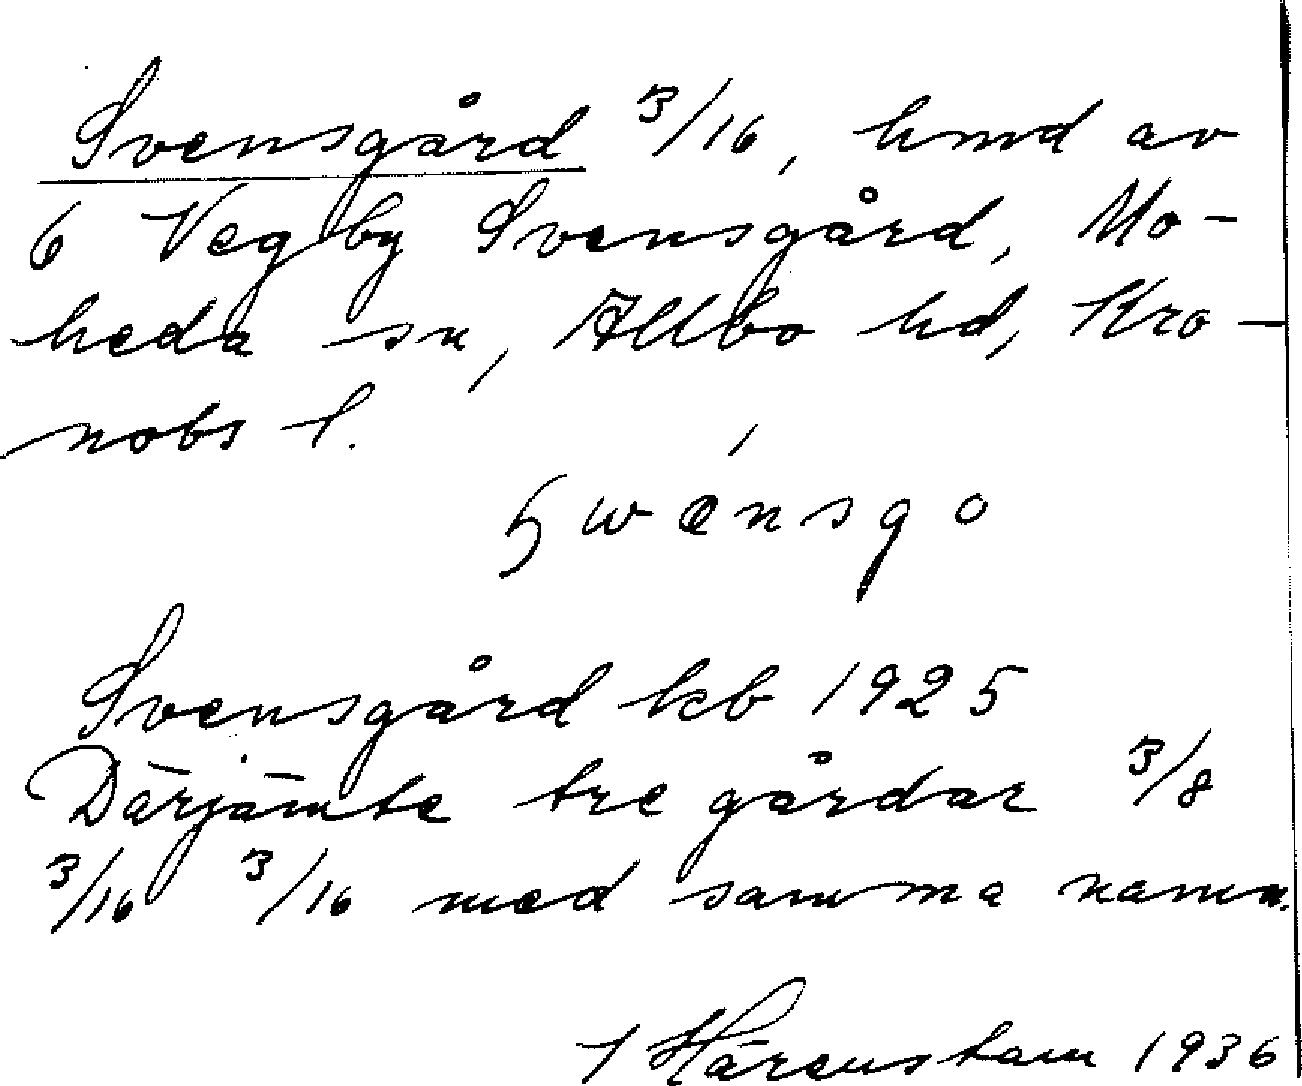 Svensgård 3/16, hmd av
6 Vegby Svensgård, Mo-
heda sn, Allbo hd, Kro-
nobs l.
Svensgård kb 1925
Därjämte tre gårdar 3/8
3/16 3/16 med samma namn.
Härenstam 1936